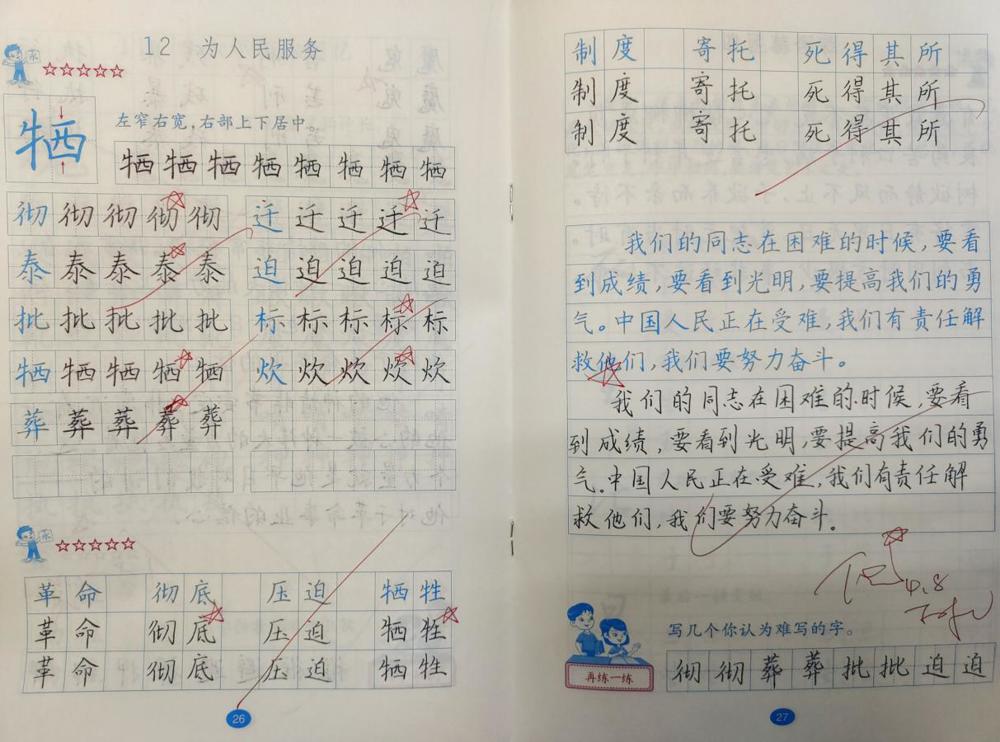 12 为人民服务
牺
左窄右宽,右部上下居中。
牺牺牺牺牺牺牺牺
彻彻彻彻彻 迁迁迁迁迁
泰泰泰泰泰 迫迫迫迫迫
批批批批批 标标标标标
牺牺牺牺牺 炊炊炊炊炊
葬葬葬葬葬
革命 彻底 压迫 牺牲
革命 彻底 压迫 牺牲
革命 彻底 压迫 牺牲
26
制度 寄托 死得其所
制度 寄托 死得其所
制度 寄托 死得其所
我们的同志在困难的时候,要看
到成绩,要看到光明,要提高我们的勇
气。中国人民正在受难,我们有责任解
救他们,我们要努力奋斗。
我们的同志在困难的时候,要看
到成绩,要看到光明,要提高我们的勇
气.中国人民正在受难,我们有责任解
救他们,我们要努力奋斗.
4.8
写几个你认为难写的字。
再练一练
彻彻葬葬批批迫迫
27